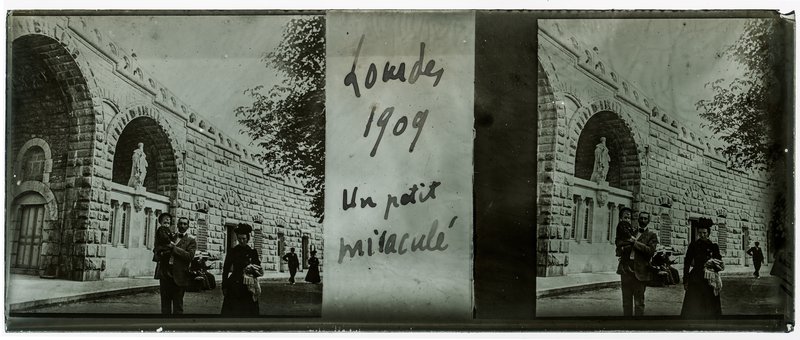 Lourdes
1909
Un petit
miraculé